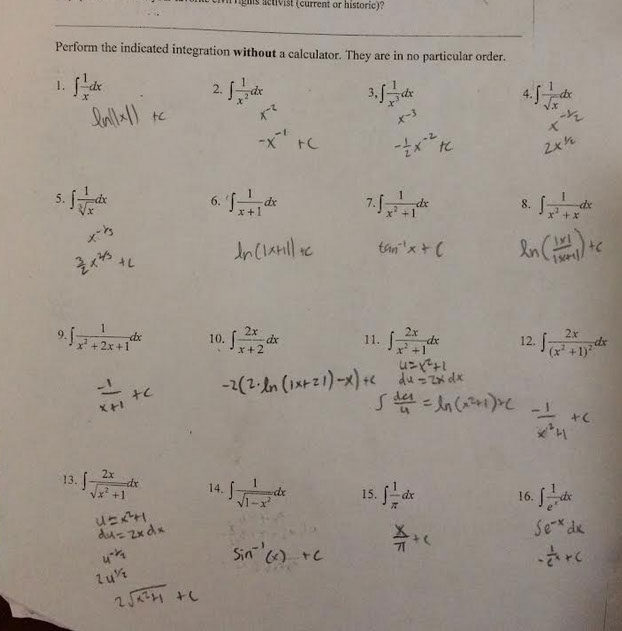 civil rights activist (current or historic)?
Perform the indicated integration without a calculator. They are in no particular order.
1. ∫ 1/x dx
ln(|x|) +C
2. ∫ 1/x² dx
x⁻²
-x⁻¹ +C
3. ∫ 1/x³ dx
x⁻³
-1/2 x⁻² +C
4. ∫ 1/√x dx
x^(-1/2)
2x^(1/2)
5. ∫ 1/∛x dx
x^(-1/3)
3/2 x^(2/3) +C
6. ∫ 1/(x+1) dx
ln(|x+1|) +C
7. ∫ 1/(x²+1) dx
tan⁻¹x + C
8. ∫ 1/(x²+x) dx
ln(|x|/|x+1|) +C
9. ∫ 1/(x²+2x+1) dx
-1/(x+1) +C
10. ∫ 2x/(x+2) dx
-2(2·ln(|x+2|)-x)+C
11. ∫ 2x/(x²+1) dx
u=x²+1
du=2x dx
∫ du/u = ln(x²+1)+C
12. ∫ 2x/(x²+1)² dx
-1/(x²+1) +C
13. ∫ 2x/√(x²+1) dx
u=x²+1
du=2x dx
u^(-1/2)
2u^(1/2)
2√(x²+1) +C
14. ∫ 1/√(1-x²) dx
sin⁻¹(x) +C
15. ∫ 1/π dx
x/π +C
16. ∫ 1/eˣ dx
∫e⁻ˣ dx
-1/eˣ +C